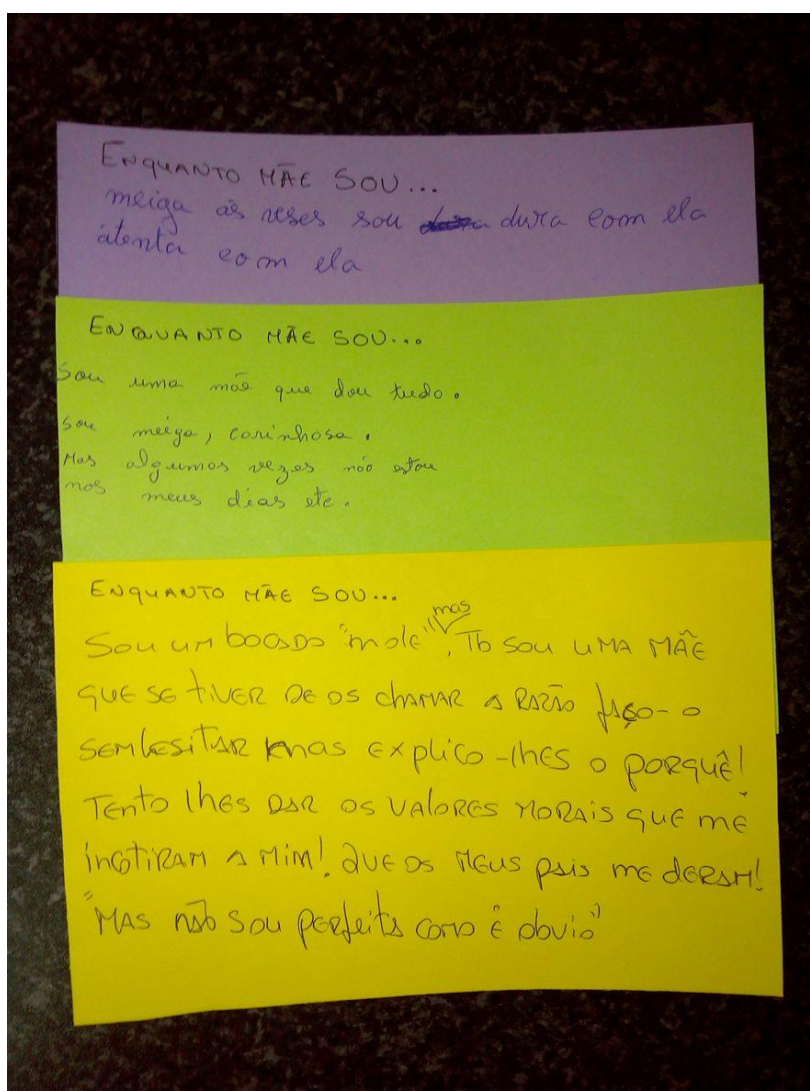 ENQUANTO MÃE SOU...
meiga ás veses sou dura com ela
atenta com ela
ENQUANTO MÃE SOU...
Sou uma mãe que dou tudo.
Sou meiga, carinhosa.
Mas algumas vezes não estou
nos meus dias etc.
ENQUANTO MÃE SOU...
Sou um bocado "mole", mas Tb sou UMA MÃE
QUE SE TIVER DE OS CHAMAR A RAZÃO FAÇO-O
SEM ESITAR mas EXPLICO-lhes O PORQUÊ!
TENTO lhes DAR OS VALORES MORAIS QUE ME
incotiRAM A MIM! QUE OS MEUS pais me DERAM!
"MAS NÃO SOU PERFEITA como é obvio"